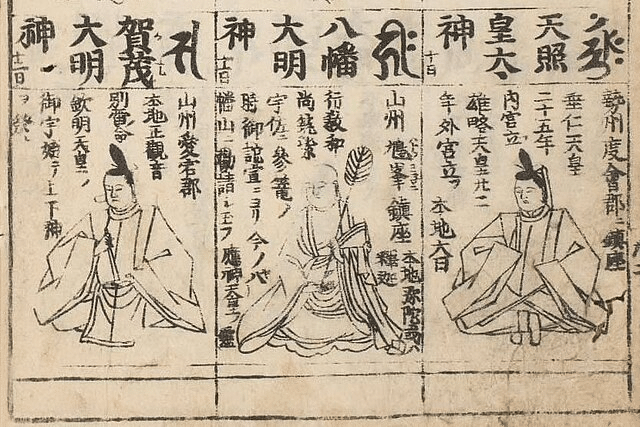 天照
皇太
神
十日
勢州度會郡ニ鎮座
垂仁天皇
二十五年
内宮立
雄略天皇廿二
年外宮立ツ
本地大日
八幡
大明
神
十一日
山州鳩峯鎮座
本地弥陀或
釈迦
行教和
尚
宇佐ニ参篭ノ
時御託宣ニヨリ今ノ
幡山ニ勧請シ玉フ
應神天皇
霊
賀茂
大明
神
十二日
山州愛宕郡
本地正觀音
別雷命
欽明天皇ノ
御宇
上下神